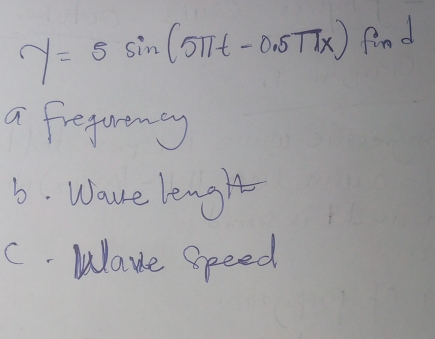 y = 5 sin(5πt - 0.5πx) find
a frequency
b. Wave lenght
c. Wave speed